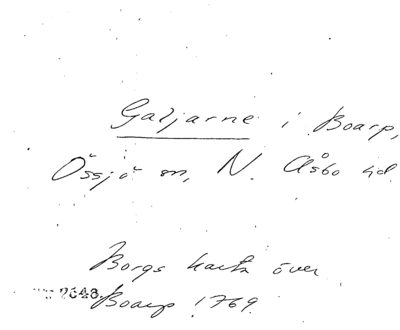 Galjarne i Boarp,
Össjö sn, N. Åsbo hd.
Borgs karta över
2648.
Boarp 1769.